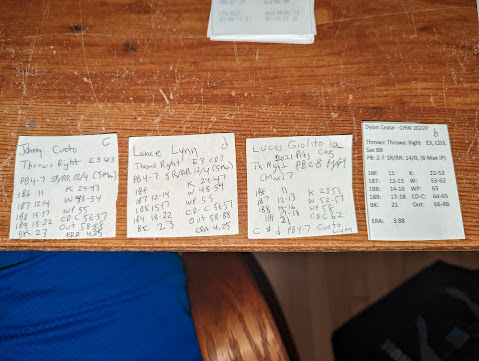 Johnny Cueto c
Throws Right E3 CD3
PB4-7 SR/RR 12/4 (5 Max)
1Bf 11 K 24-47
1B7 12-14 W 48-54
1B8 15-17 WP 55
1B9 18-22 CD-C 56-57
BK 23 Out 58-88
ERA 4.25
Lance Lynn d
Throws Right E3 CD3
PB4-7 SR/RR 12/4 (5 Max)
1Bf 11 K 24-47
1B7 12-14 W 48-54
1B8 15-17 WP 55
1B9 18-22 CD-C 56-57
BK 23 Out 58-88
ERA 4.25
Lucas Giolito a
2021 Pit Card
Th Right PB2-8
(Max 7)
1Bf 11 K 23-51
1B7 12-13 W 52-57
1B8 WP 58
1B9 CD-C
BK 21 CD C 62
C & d PB4-7 Cueto
Lynn
Dylan Cease - CHW 2022P b
Throws: Throws: Right E3, CD3,
Sac BB
PB: 2-7 SR/RR: 14/0, (6 Max IP)
1Bf: 11 K: 22-52
1B7: 12-13 W: 53-62
1B8: 14-16 WP: 63
1B9: 17-18 CD-C: 64-65
BK: 21 Out: 66-88
ERA: 3.88